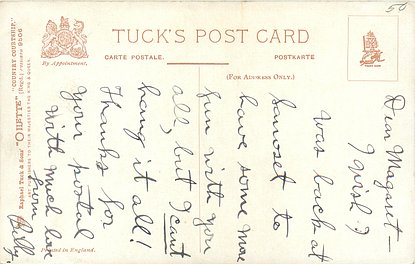 50
TUCK'S POST CARD
CARTE POSTALE.
POSTKARTE
By Appointment.
(FOR ADDRESS ONLY.)
Raphael Tuck & Sons' "OILETTE"
"GUNNERY COURTSHIP."
(Regd.) Postcard 9506
Printed in England.
Dear Margaret—
I wish I
was back at
to
have some more
fun with you
all, but I can't
hang it all!
Thanks for
your postal
With much love
from
Billy